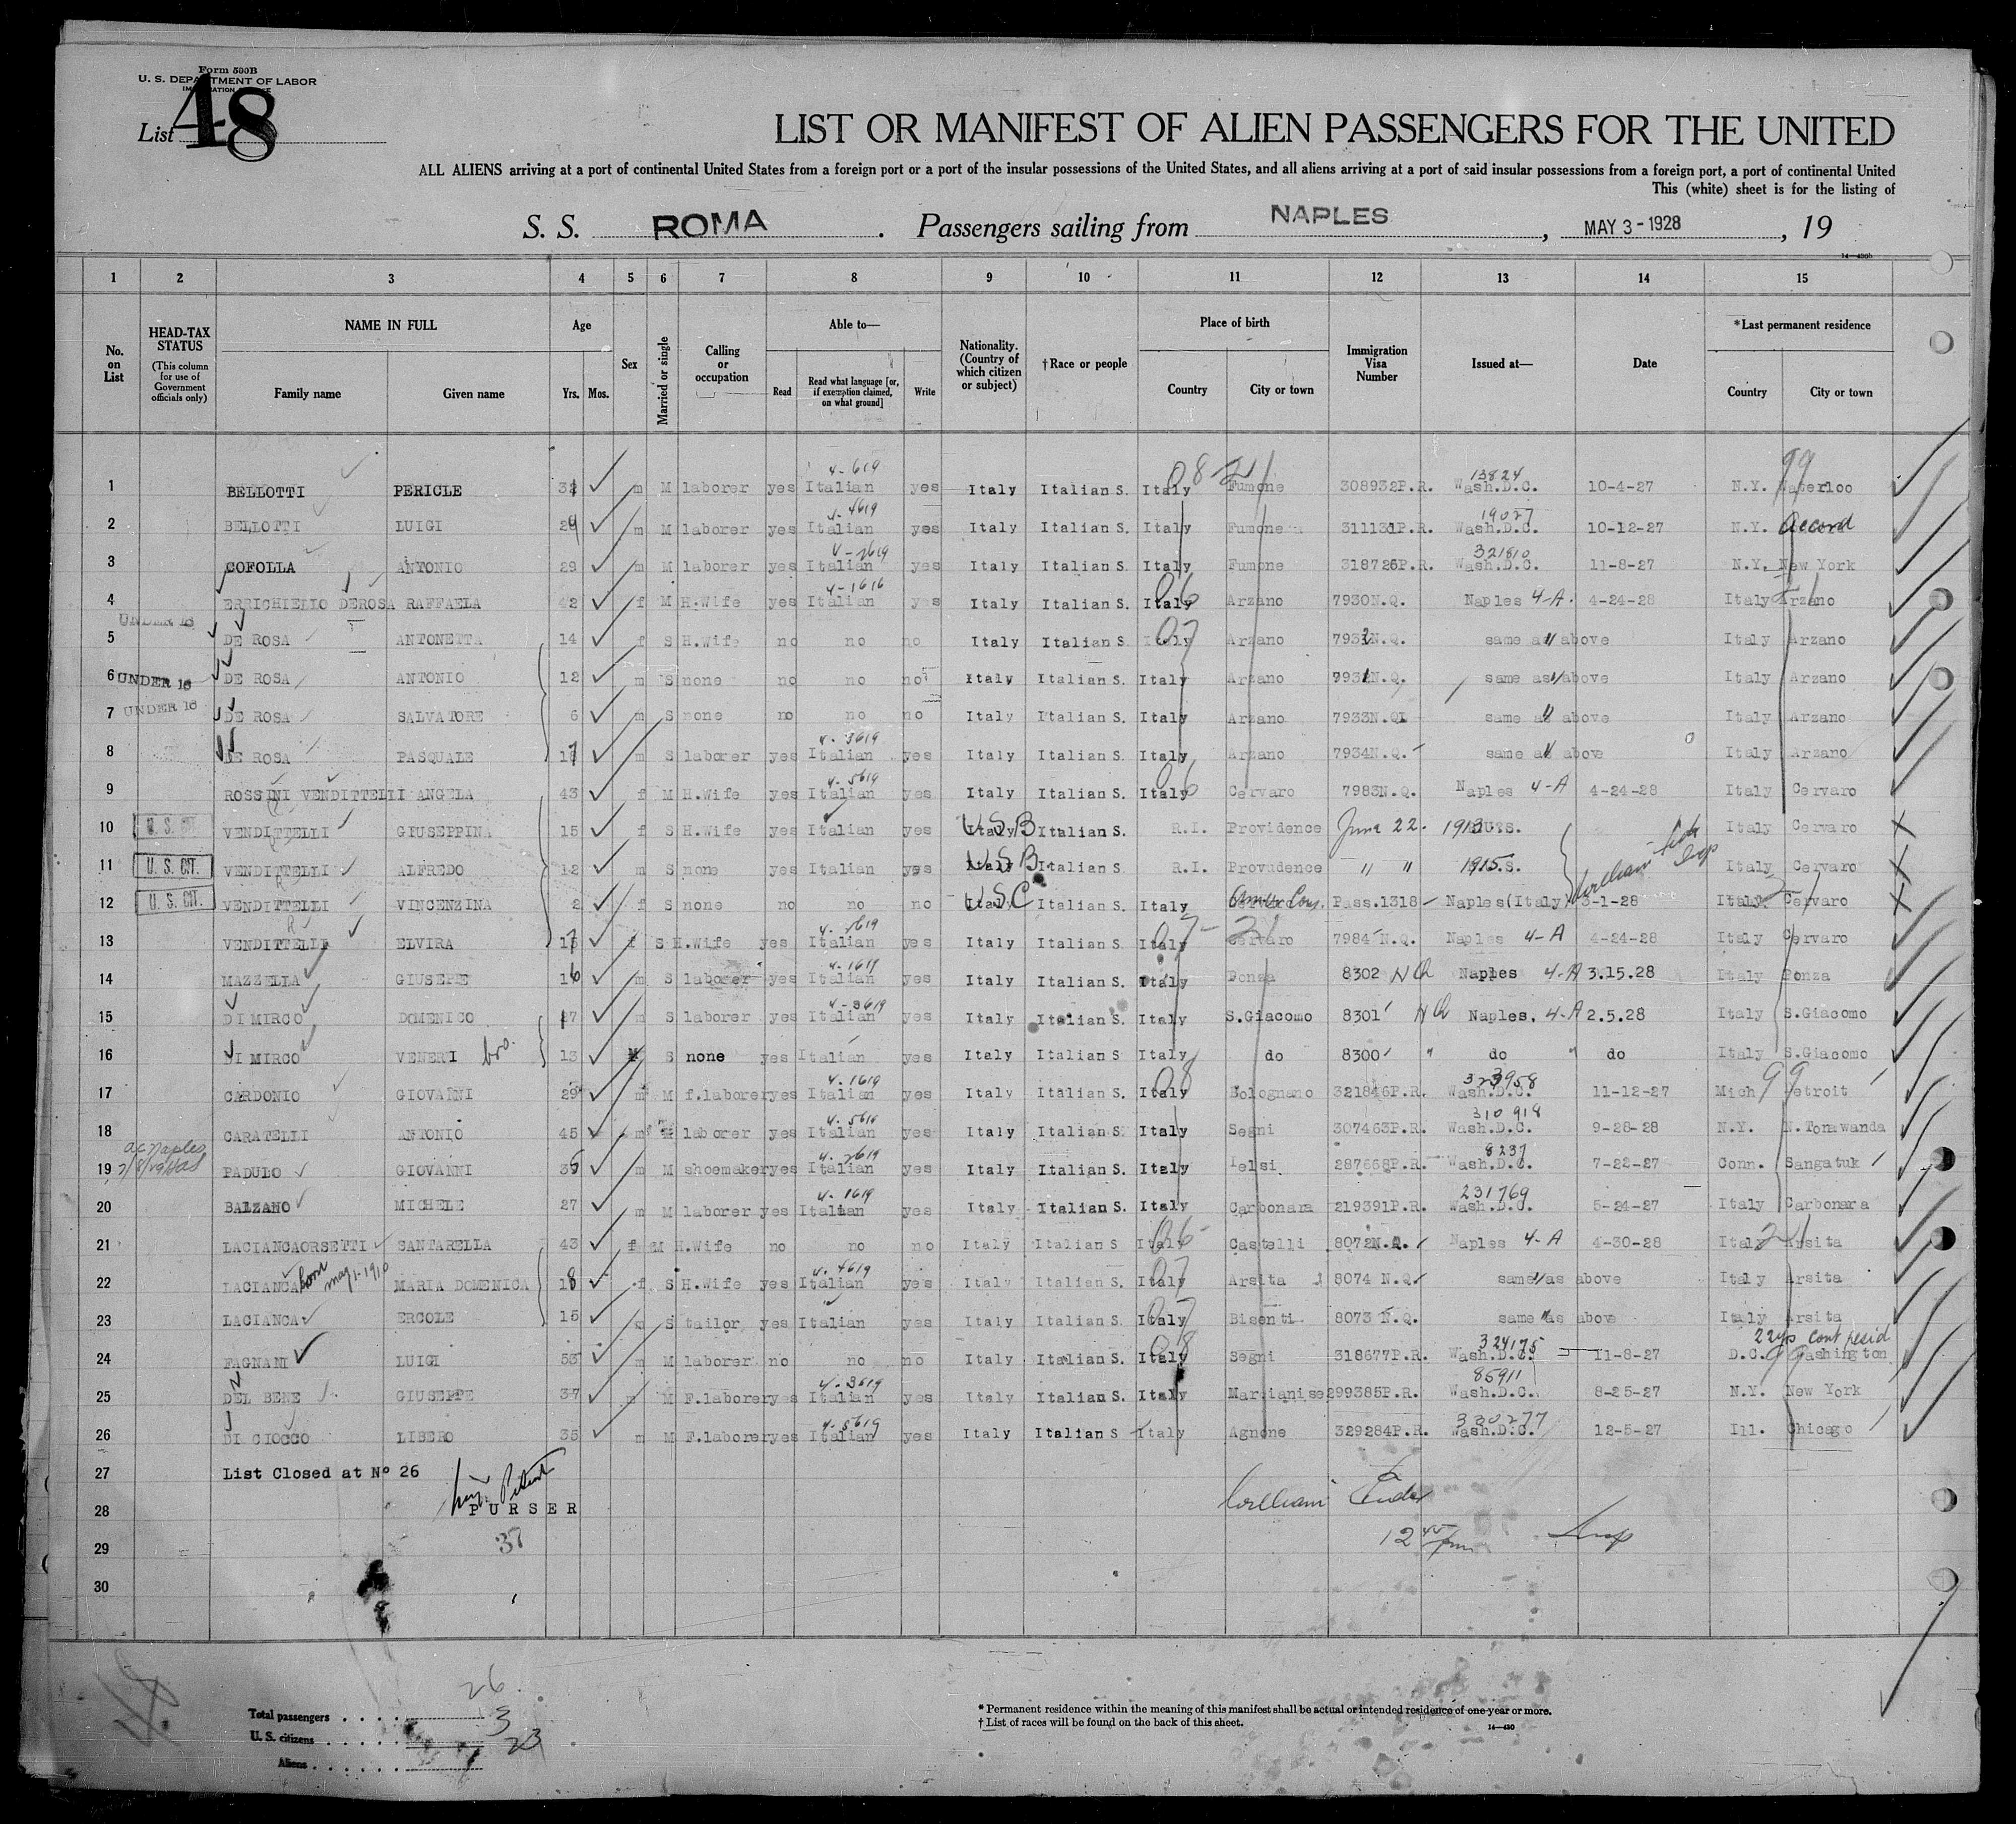 Form 500B
U. S. DEPARTMENT OF LABOR
List 48
LIST OR MANIFEST OF ALIEN PASSENGERS FOR THE UNITED
ALL ALIENS arriving at a port of continental United States from a foreign port or a port of the insular possessions of the United States, and all aliens arriving at a port of said insular possessions from a foreign port, a port of continental United
This (white) sheet is for the listing of
S. S. ROMA . Passengers sailing from NAPLES , MAY 3-1928 , 19
1 2 3 4 5 6 7 8 9 10 11 12 13 14 15
No. on List HEAD-TAX STATUS (This column for use of Government officials only) NAME IN FULL Family name Given name Age Yrs. Mos. Sex Married or single Calling or occupation Able to— Read Read what language [or, if exemption claimed, on what ground] Write Nationality. (Country of which citizen or subject) †Race or people Place of birth Country City or town Immigration Visa Number Issued at— Date *Last permanent residence Country City or town
4-619 08-21 13824 99
1 BELLOTTI PERICLE m M laborer yes Italian yes Italy Italian S. Italy Fumone 308932P.R. Wash.D.C. 10-4-27 N.Y. Waterloo
4-4619 19027
2 BELLOTTI LUIGI 29 m M laborer yes Italian yes Italy Italian S. Italy Fumone 311131P.R. Wash.D.C. 10-12-27 N.Y. Accord
4-2619 321810
3 COFOLLA ANTONIO 29 m M laborer yes Italian yes Italy Italian S. Italy Fumone 318726P.R. Wash.D.C. 11-8-27 N.Y. New York
4-1616 06 21
4 ERRICHIELIO DEROSA RAFFAELA 42 f M H.Wife yes Italian yes Italy Italian S. Italy Arzano 7930N.Q. Naples 4-A. 4-24-28 Italy Arzano
UNDER 16 07
5 DE ROSA ANTONETTA 14 f S H.Wife no no no Italy Italian S Italy Arzano 7932N.Q. same as above Italy Arzano
6 UNDER 16 DE ROSA ANTONIO 12 m S none no no no Italy Italian S. Italy Arzano 7931N.Q. same as above Italy Arzano
7 UNDER 16 DE ROSA SALVATORE 6 m S none no no no Italy Italian S. Italy Arzano 7933N.Q. same as above Italy Arzano
4-3619
8 DE ROSA PASQUALE 17 m S laborer yes Italian yes Italy Italian S. Italy Arzano 7934N.Q. same as above Italy Arzano
4-5619 06
9 ROSSINI VENDITTELLI ANGELA 43 f M H.Wife yes Italian yes Italy Italian S. Italy Cervaro 7983N.Q. Naples 4-A 4-24-28 Italy Cervaro
10 U. S. CIT. VENDITTELLI GIUSEPPINA 15 f S H.Wife yes Italian yes Italy U.S.B Italian S. R.I. Providence June 22. 1913 U.S. Italy Cervaro
11 U. S. CIT. VENDITTELLI ALFREDO 12 m S none yes Italian yes Italy U.S.B. Italian S R.I. Providence " " 1915.S. Italy Cervaro
12 U. S. CIT. VENDITTELLI VINCENZINA 2 f S none no no no Italy U.S.C Italian S. Italy Pass.1318 Naples(Italy) 3-1-28 Italy Cervaro
4-2619 07-21
13 VENDITTELLI ELVIRA 17 f S H.Wife yes Italian yes Italy Italian S. Italy Cervaro 7984 N.Q. Naples 4-A 4-24-28 Italy Cervaro
4-1619
14 MAZZELLA GIUSEPE 16 m S laborer yes Italian yes Italy Italian S. Italy Ponza 8302 Naples 4-A 3.15.28 Italy Ponza
4-3619
15 DI MIRCO DOMENICO 17 m S laborer yes Italian yes Italy Italian S. Italy S.Giacomo 8301 Naples. 4-A 2.5.28 Italy S.Giacomo
16 DI MIRCO VENERI bro. 13 M S none yes Italian yes Italy Italian S Italy do 8300 " do " do Italy S.Giacomo
4-1619 08 323958 99
17 CARDONIO GIOVANNI 29 m M f.laborer yes Italian yes Italy Italian S. Italy Bolognano 321846P.R. Wash.D.C. 11-12-27 Mich Detroit
4-5619 310918
18 CARATELLI ANTONIO 45 m M laborer yes Italian yes Italy Italian S. Italy Segni 307463P.R. Wash.D.C. 9-28-28 N.Y. N.Tonawanda
4-2619 8237
19 PADULO GIOVANNI 35 m M shoemaker yes Italian yes Italy Italian S. Italy Ielsi 287668P.R. Wash.D.C. 7-22-27 Conn. Sangatuk
4-1619 231769
20 BALZANO MICHELE 27 m M laborer yes Italian yes Italy Italian S. Italy Carbonara 219391P.R. Wash.D.C. 5-24-27 Italy Carbonara
06 21
21 LACIANCAORSETTI SANTARELLA 43 f M H.Wife no no no Italy Italian S Italy Castelli 8072N.Q. Naples 4-A 4-30-28 Italy Arsita
4-4619 07
22 LACIANCA born may 1-1910 MARIA DOMENICA 18 f S H.Wife yes Italian yes Italy Italian S. Italy Arsita 8074 N.Q. same as above Italy Arsita
07
23 LACIANCA ERCOLE 15 m S tailor yes Italian yes Italy Italian S. Italy Bisenti 8073 N.Q. same as above Italy Arsita
08 324175 22 yrs cont resid
24 FAGNANI LUIGI 53 m M laborer no no no Italy Italian S. Italy Segni 318677P.R. Wash.D.C. 11-8-27 D.C. Washington
4-3619 85911
25 DEL BENE GIUSEPPE 37 m M F.laborer yes Italian yes Italy Italian S. Italy Marcianise 299385P.R. Wash.D.C. 8-25-27 N.Y. New York
4-5619 330277
26 DI CIOCCO LIBERO 35 m M F.laborer yes Italian yes Italy Italian S Italy Agnone 329284P.R. Wash.D.C. 12-5-27 Ill. Chicago
27 List Closed at No 26
28 PURSER William
29 37 12 45 pm
30
Total passengers 26
U. S. citizens 3
Aliens 23
* Permanent residence within the meaning of this manifest shall be actual or intended residence of one year or more.
† List of races will be found on the back of this sheet.
14—430